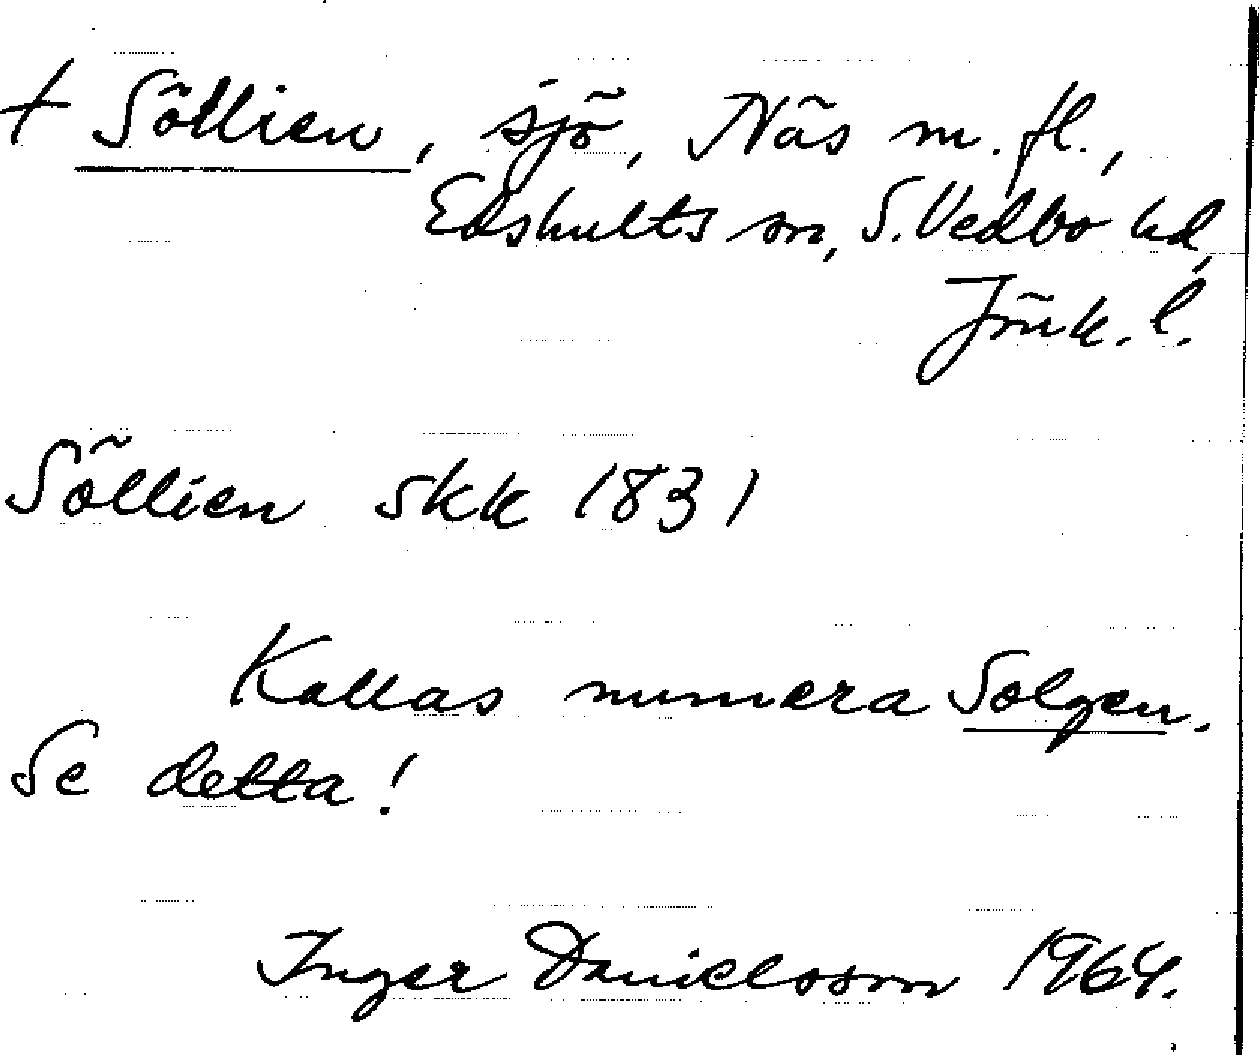 † Söllien, sjö, Näs m. fl.,
Edshults sn, S. Vedbo hd,
Jönk. l.
Söllien skk 1831
Kallas numera Solgen.
Se detta!
Inger Danielsson 1964.